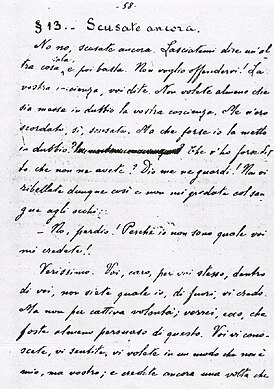 - 58 -
§ 13. - Scusate ancora.
No no, scusate ancora. Lasciatemi dire un'al-
tra cosa sola e poi basta. Non voglio offendervi! La
vostra coscienza, voi dite. Non volete almeno che
sia messa in dubbio la vostra coscienza. Me n'ero
scordato, sì, scusate. Ma che forse io la metto
in dubbio? Che v'ho forse det-
to che non ne avete? Dio me ne guardi! Non vi
ribellate dunque così e non mi gridate col san-
gue agli occhi:
- No, perdio! Perchè io non sono quale voi
mi credete!!
Verissimo. Voi, caro, per voi stesso, dentro
di voi, non siete quale io, di fuori, vi credo.
Ma non per cattiva volontà; vorrei, ecco, che
foste almeno persuaso di questo. Voi vi cono-
scete, vi sentite, vi volete in un modo che non è
mio, ma vostro; e credete ancora una volta che